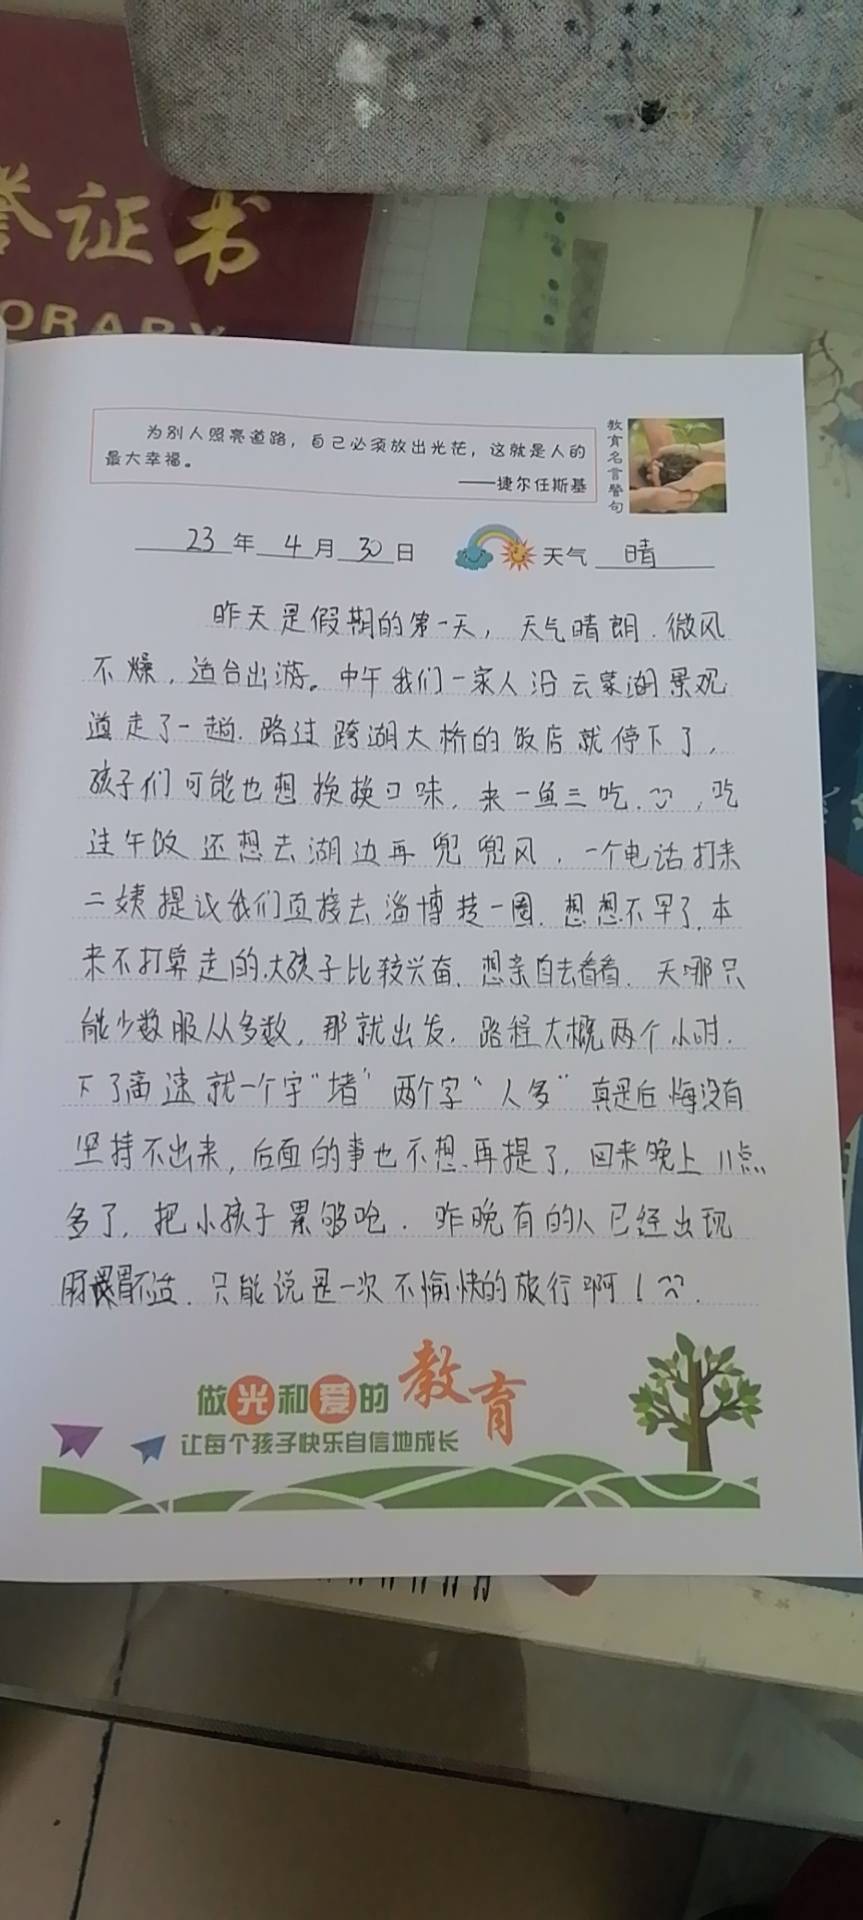 誉证书
ORARY
为别人照亮道路，自己必须放出光芒，这就是人的
最大幸福。
——捷尔任斯基
教育名言警句
23年4月30日 天气 晴
昨天是假期的第一天，天气晴朗.微风
不燥，适合出游。中午我们一家人沿云蒙湖景观
道走了一趟.路过跨湖大桥的饭店就停下了，
孩子们可能也想换换口味，来一鱼三吃.，吃
过午饭还想去湖边再兜兜风，一个电话打来
二姨提议我们直接去淄博转一圈.想想不早了.本
来不打算走的.大孩子比较兴奋、想亲自去看看.天哪只
能少数服从多数，那就出发.路程大概两个小时.
下了高速就一个字"堵"两个字"人多"真是后悔没有
坚持不出来，后面的事也不想.再提了，回来晚上11点
多了，把小孩子累够呛.昨晚有的人已经出现
肠胃不适.只能说是一次不愉快的旅行啊！
做光和爱的教育
让每个孩子快乐自信地成长